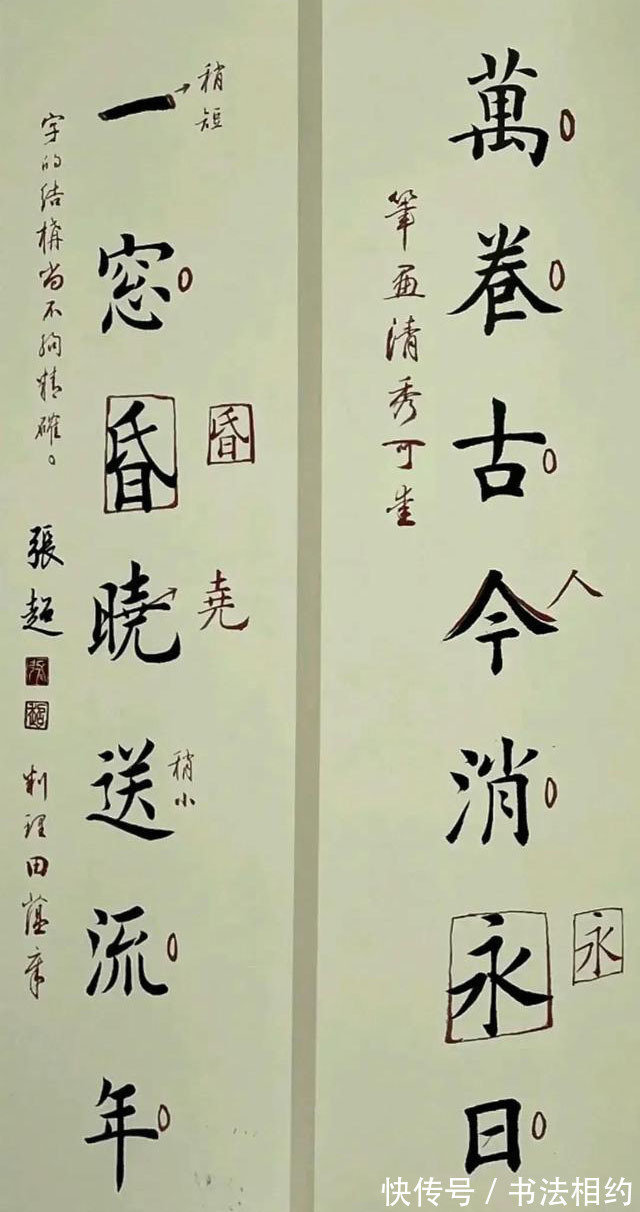 萬卷古今消永日
人
永
筆画清秀可
一窓昏曉送流年
稍短
昏
堯
稍小
字的结構尚不夠精確。
張超
理田蘊章
快传号 / 书法相约